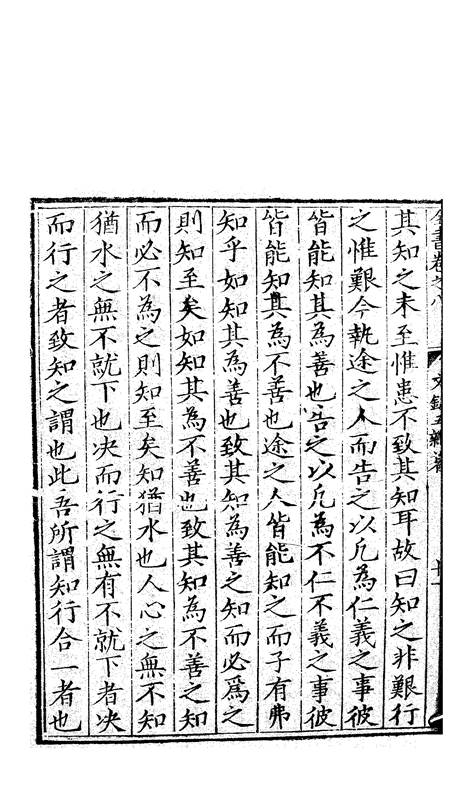 全書卷之八
文錄五雜著
其知之未至惟患不致其知耳故曰知之非艱行
之惟艱今執途之人而告之以凡為仁義之事彼
皆能知其為善也告之以凡為不仁不義之事彼
皆能知其為不善也途之人皆能知之而子有弗
知乎如知其為善也致其知為善之知而必爲之
則知至矣如知其為不善也致其知為不善之知
而必不為之則知至矣知猶水也人心之無不知
猶水之無不就下也决而行之無有不就下者决
而行之者致知之謂也此吾所謂知行合一者也